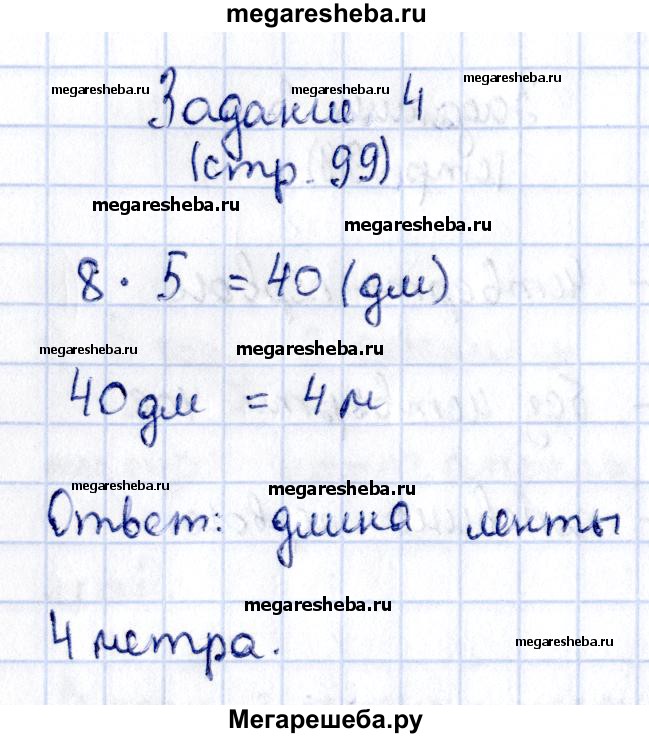 megaresheba.ru
megaresheba.ru megaresheba.ru megaresheba.ru
Задание 4
(стр. 99)
megaresheba.ru
megaresheba.ru
8 · 5 = 40 (дм)
megaresheba.ru megaresheba.ru
40 дм = 4 м
megaresheba.ru megaresheba.ru
Ответ: длина ленты
megaresheba.ru
4 метра.
megaresheba.ru
Мегарешеба.ру